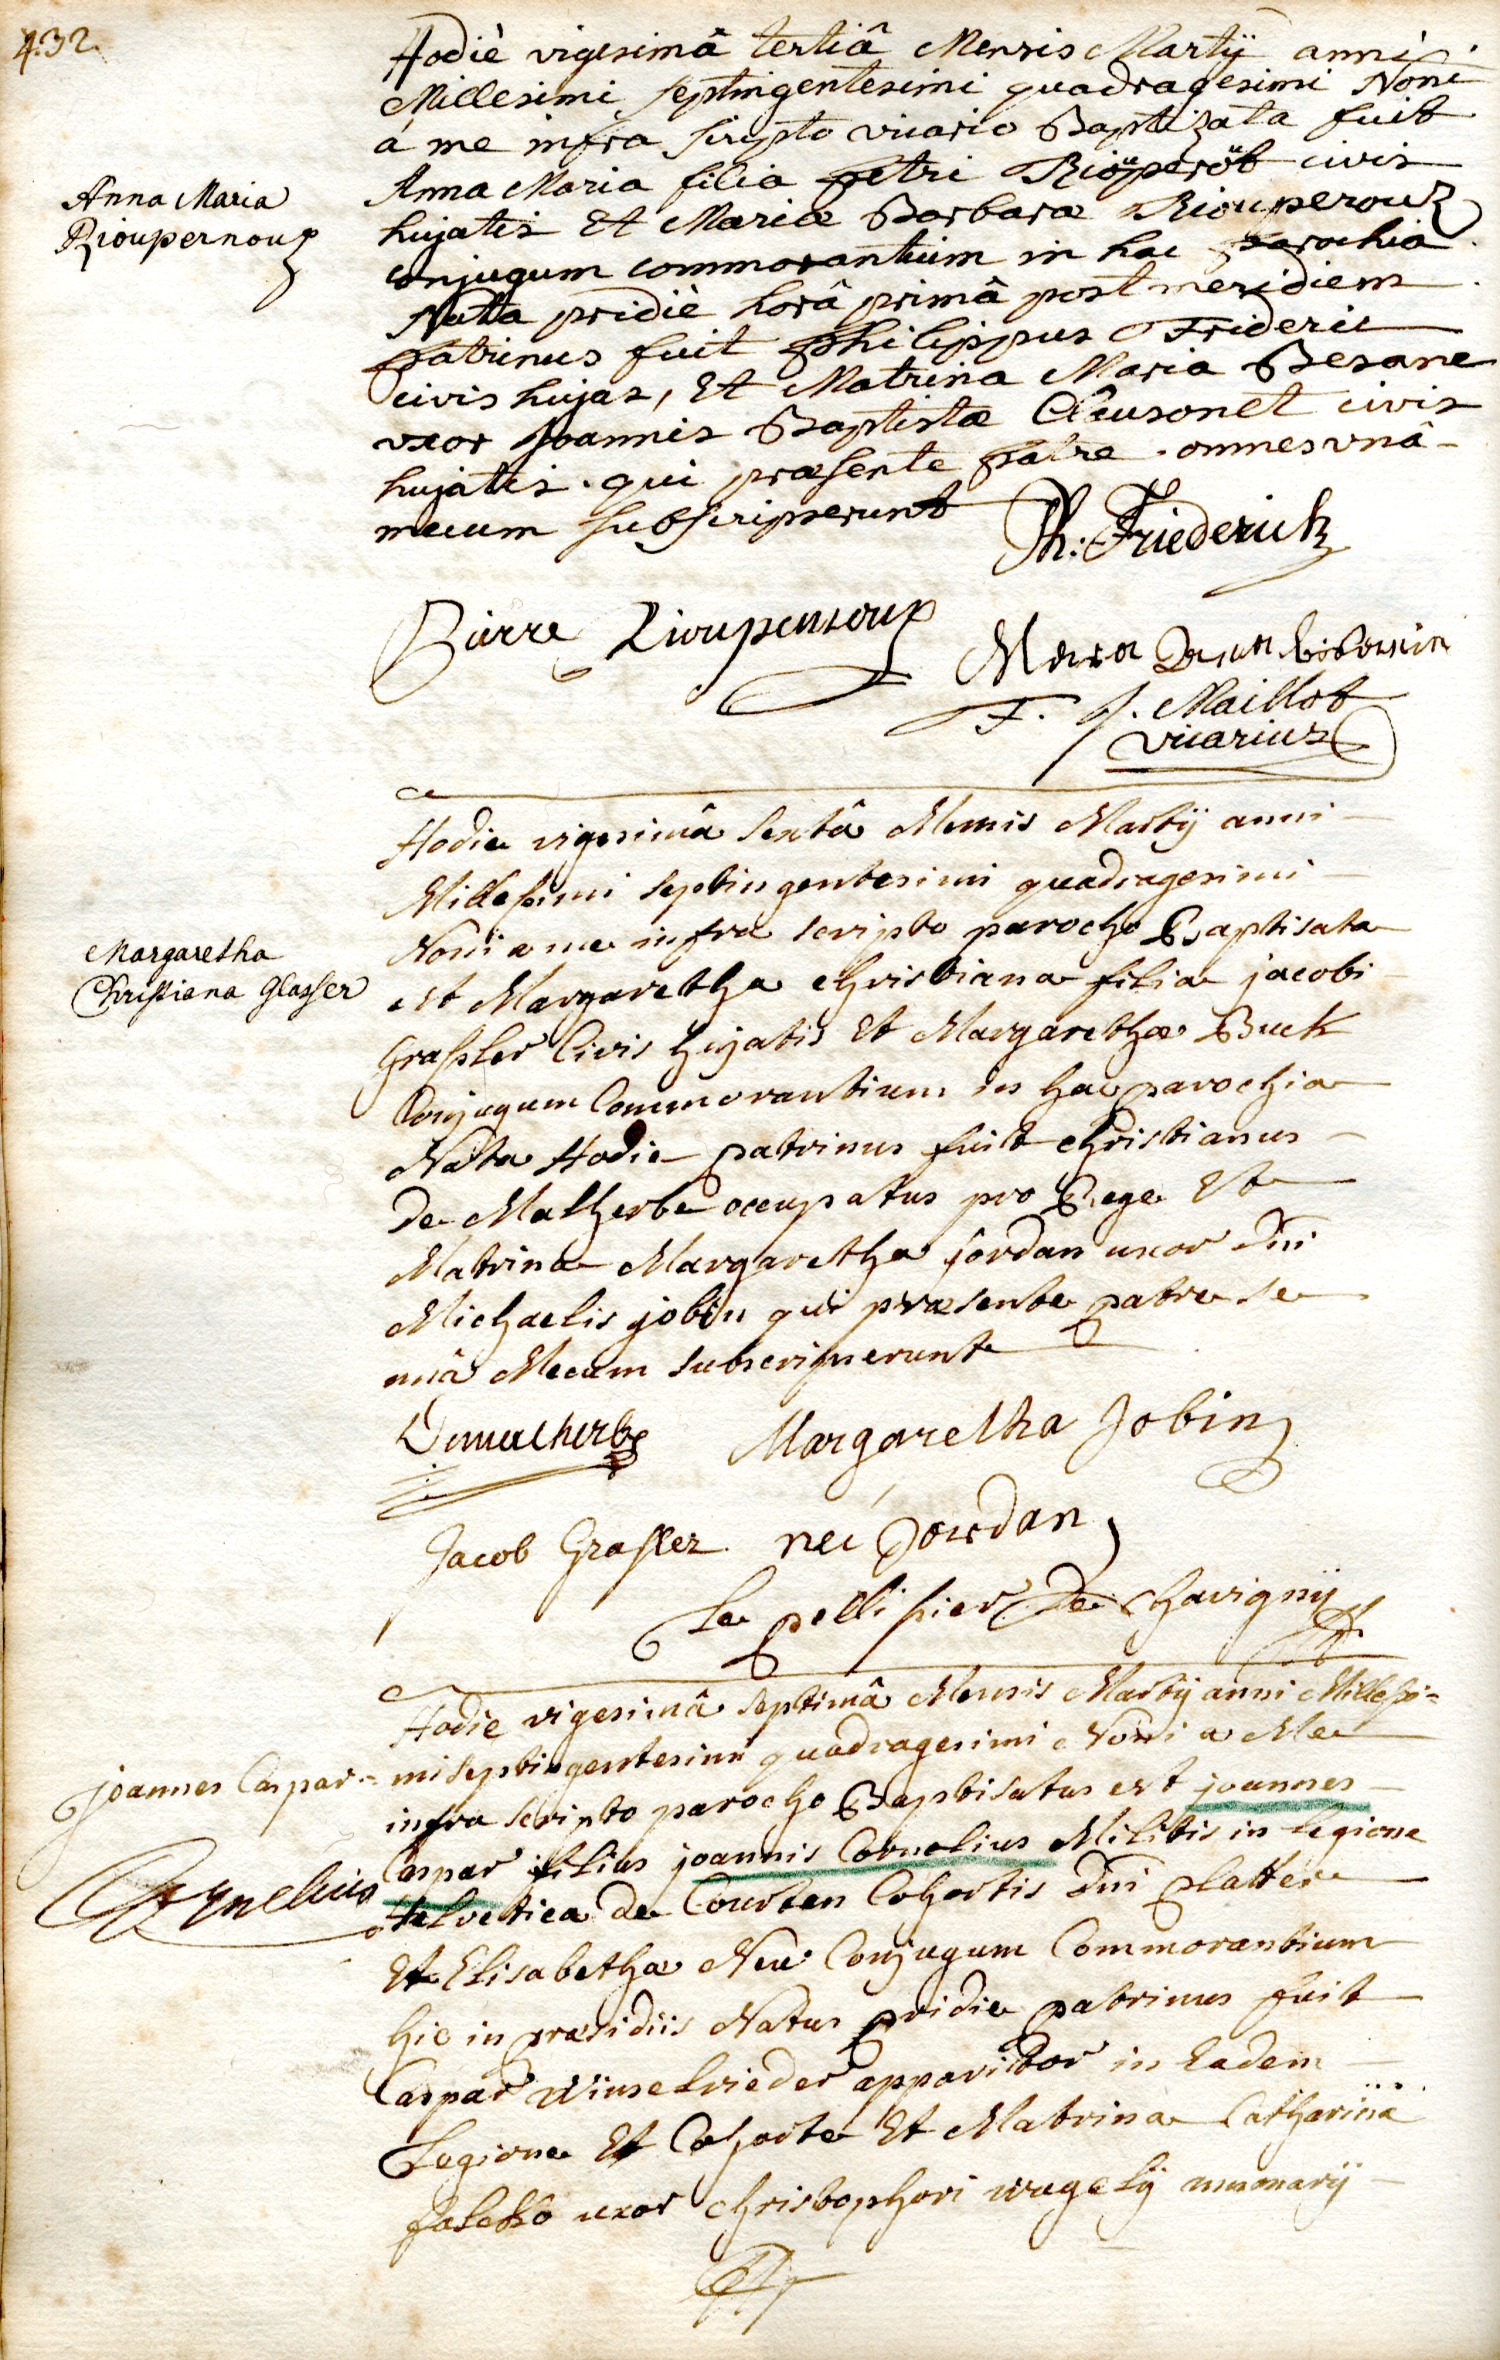 432.
Hodiè vigesimâ tertiâ Mensis Martÿ anni
Millesimi septingentesimi quadragesimi Noni
á me infra scripto vicario Baptizata fuit
Anna Maria filia petri civis
Anna Maria
Rioupernoux
hujatis Et Mariæ Barbaræ Riouperoux
conjugum commorantium in hac parochia.
Nata pridiè horâ primâ post meridiem.
patrinus fuit philippus Frideric
civis hujas, Et Matrina Maria Besane
uxor Joannis Baptistæ Clausonet civis
hujatis. qui præsente patre omnes unâ-
mecum subscripserunt
Ph: Friederich
Pierre Rioupernoux
Maria
F. J. Maillot
vicarius
Hodie vigesimâ sextâ Mensis Martÿ anni
Millesimi septingentesimi quadragesimi
Noni a me infra scripto parocho Baptisata
Margaretha
Christiana Glasser
est Margaretha christiana filia jacobi
Grassler Civis hujatis Et Margarethæ Buck
Conjugum Commorantium in hac parochia
Nata Hodie patrinus fuit christianus
De Malherbe occupatus pro Rege Et
Matrina Margaretha jordan uxor Dni
Michaelis jobin qui præsente patre se
unâ Mecum subscripserunt
Demalherbe
Margaretha Jobin
Jacob Grassler. neé Jourdan
Le pellissier De chavignÿ
Hodie vigesimâ septimâ Mensis Martÿ anni Millesi=
joannes Caspar=
Cornelius
mi septingentesimi quadragesimi Noni a Me
infra scripto parocho Baptisatus est joannes
Caspar filius joannis Cornelius Militis in legione
Helvetica de Courten Cohortis Dni platter
Et Elisabethæ Neu Conjugum Commorantium
hic in præsidiis Natus pridie patrinus fuit
Caspar apparitor in Eadem
Legione Et Cohorte Et Matrina Catharina
uxor christophori